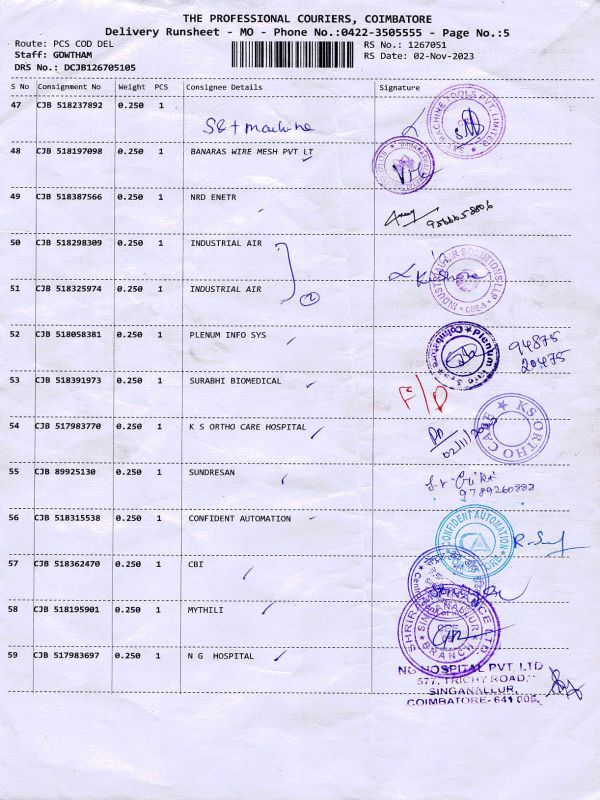 THE PROFESSIONAL COURIERS, COIMBATORE
Delivery Runsheet - MO - Phone No.:0422-3505555 - Page No.:5
Route: PCS COD DEL
RS No.: 1267051
Staff: GOWTHAM
RS Date: 02-Nov-2023
DRS No.: DCJB126705105
S No Consignment No Weight PCS Consignee Details Signature
47 CJB 518237892 0.250 1
machine
MACHINE TOOLS PVT. LIMITED
48 CJB 518197098 0.250 1 BANARAS WIRE MESH PVT LT
49 CJB 518387566 0.250 1 NRD ENETR
50 CJB 518298309 0.250 1 INDUSTRIAL AIR
INDUSTRIAL AIR SOLUTIONS LLP
CBE-5
Kishore
51 CJB 518325974 0.250 1 INDUSTRIAL AIR
2
52 CJB 518058381 0.250 1 PLENUM INFO SYS
Plenum Info Sys Coimbatore
94875
20475
53 CJB 518391973 0.250 1 SURABHI BIOMEDICAL
F/D
54 CJB 517983770 0.250 1 K S ORTHO CARE HOSPITAL
KS ORTHO CARE
55 CJB 89925130 0.250 1 SUNDRESAN
9789260882
56 CJB 518315538 0.250 1 CONFIDENT AUTOMATION
CONFIDENT AUTOMATION
CA
57 CJB 518362470 0.250 1 CBI
58 CJB 518195901 0.250 1 MYTHILI
SINGANALLUR
BRANCH
59 CJB 517983697 0.250 1 N G HOSPITAL
NG HOSPITAL PVT. LTD
577, TRICHY ROAD,
SINGANALLUR,
COIMBATORE-641 005.